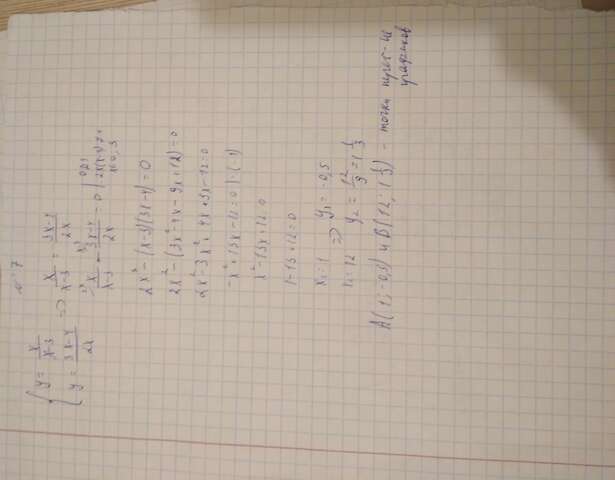 № 7
{ y = x/(x-3)
{ y = (3x-4)/2x
=> x/(x-3) = (3x-4)/2x
x/(x-3) - (3x-4)/2x = 0 |
2x² - (x-3)(3x-4) = 0
2x² - (3x² - 4x - 9x + 12) = 0
2x² - 3x² + 4x + 9x - 12 = 0
-x² + 13x - 12 = 0 | · (-1)
x² - 13x + 12 = 0
1 - 13 + 12 = 0
x₁ = 1 => y₁ = -0,5
x₂ = 12 y₂ = 12/9 = 1 1/3
A(1; -0,5) и B(12; 1 1/3) - точки
графиков